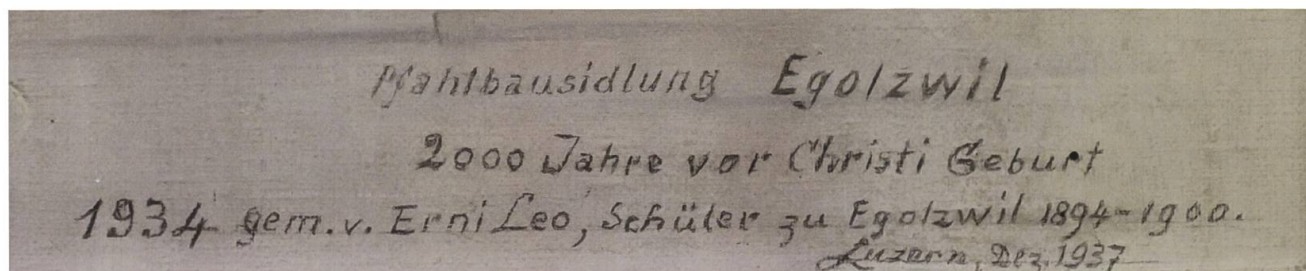 Pfahlbausidlung Egolzwil
2000 Jahre vor Christi Geburt
1934 gem. v. Erni Leo, Schüler zu Egolzwil 1894-1900.
Luzern, Dez. 1937